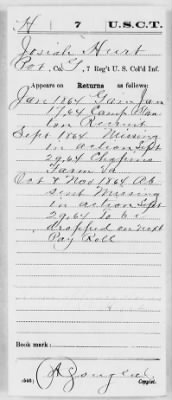 H 7 U.S.C.T.
Josiah Hurt
Pvt, Co. G, 7 Reg't U. S. Col'd Inf.
Appears on Returns as follows:
Jan 1864 Gain Jan
1, 64 Camp Stan
ton Recruit
Sept 1864 Missing
in action Sept
29, 64 Chapins
Farm Va
Oct & Nov 1864 Ab
sent Missing
in action Sept
29, 64 To be
dropped on next
Pay Roll
Book mark:
(546)
Copyist.